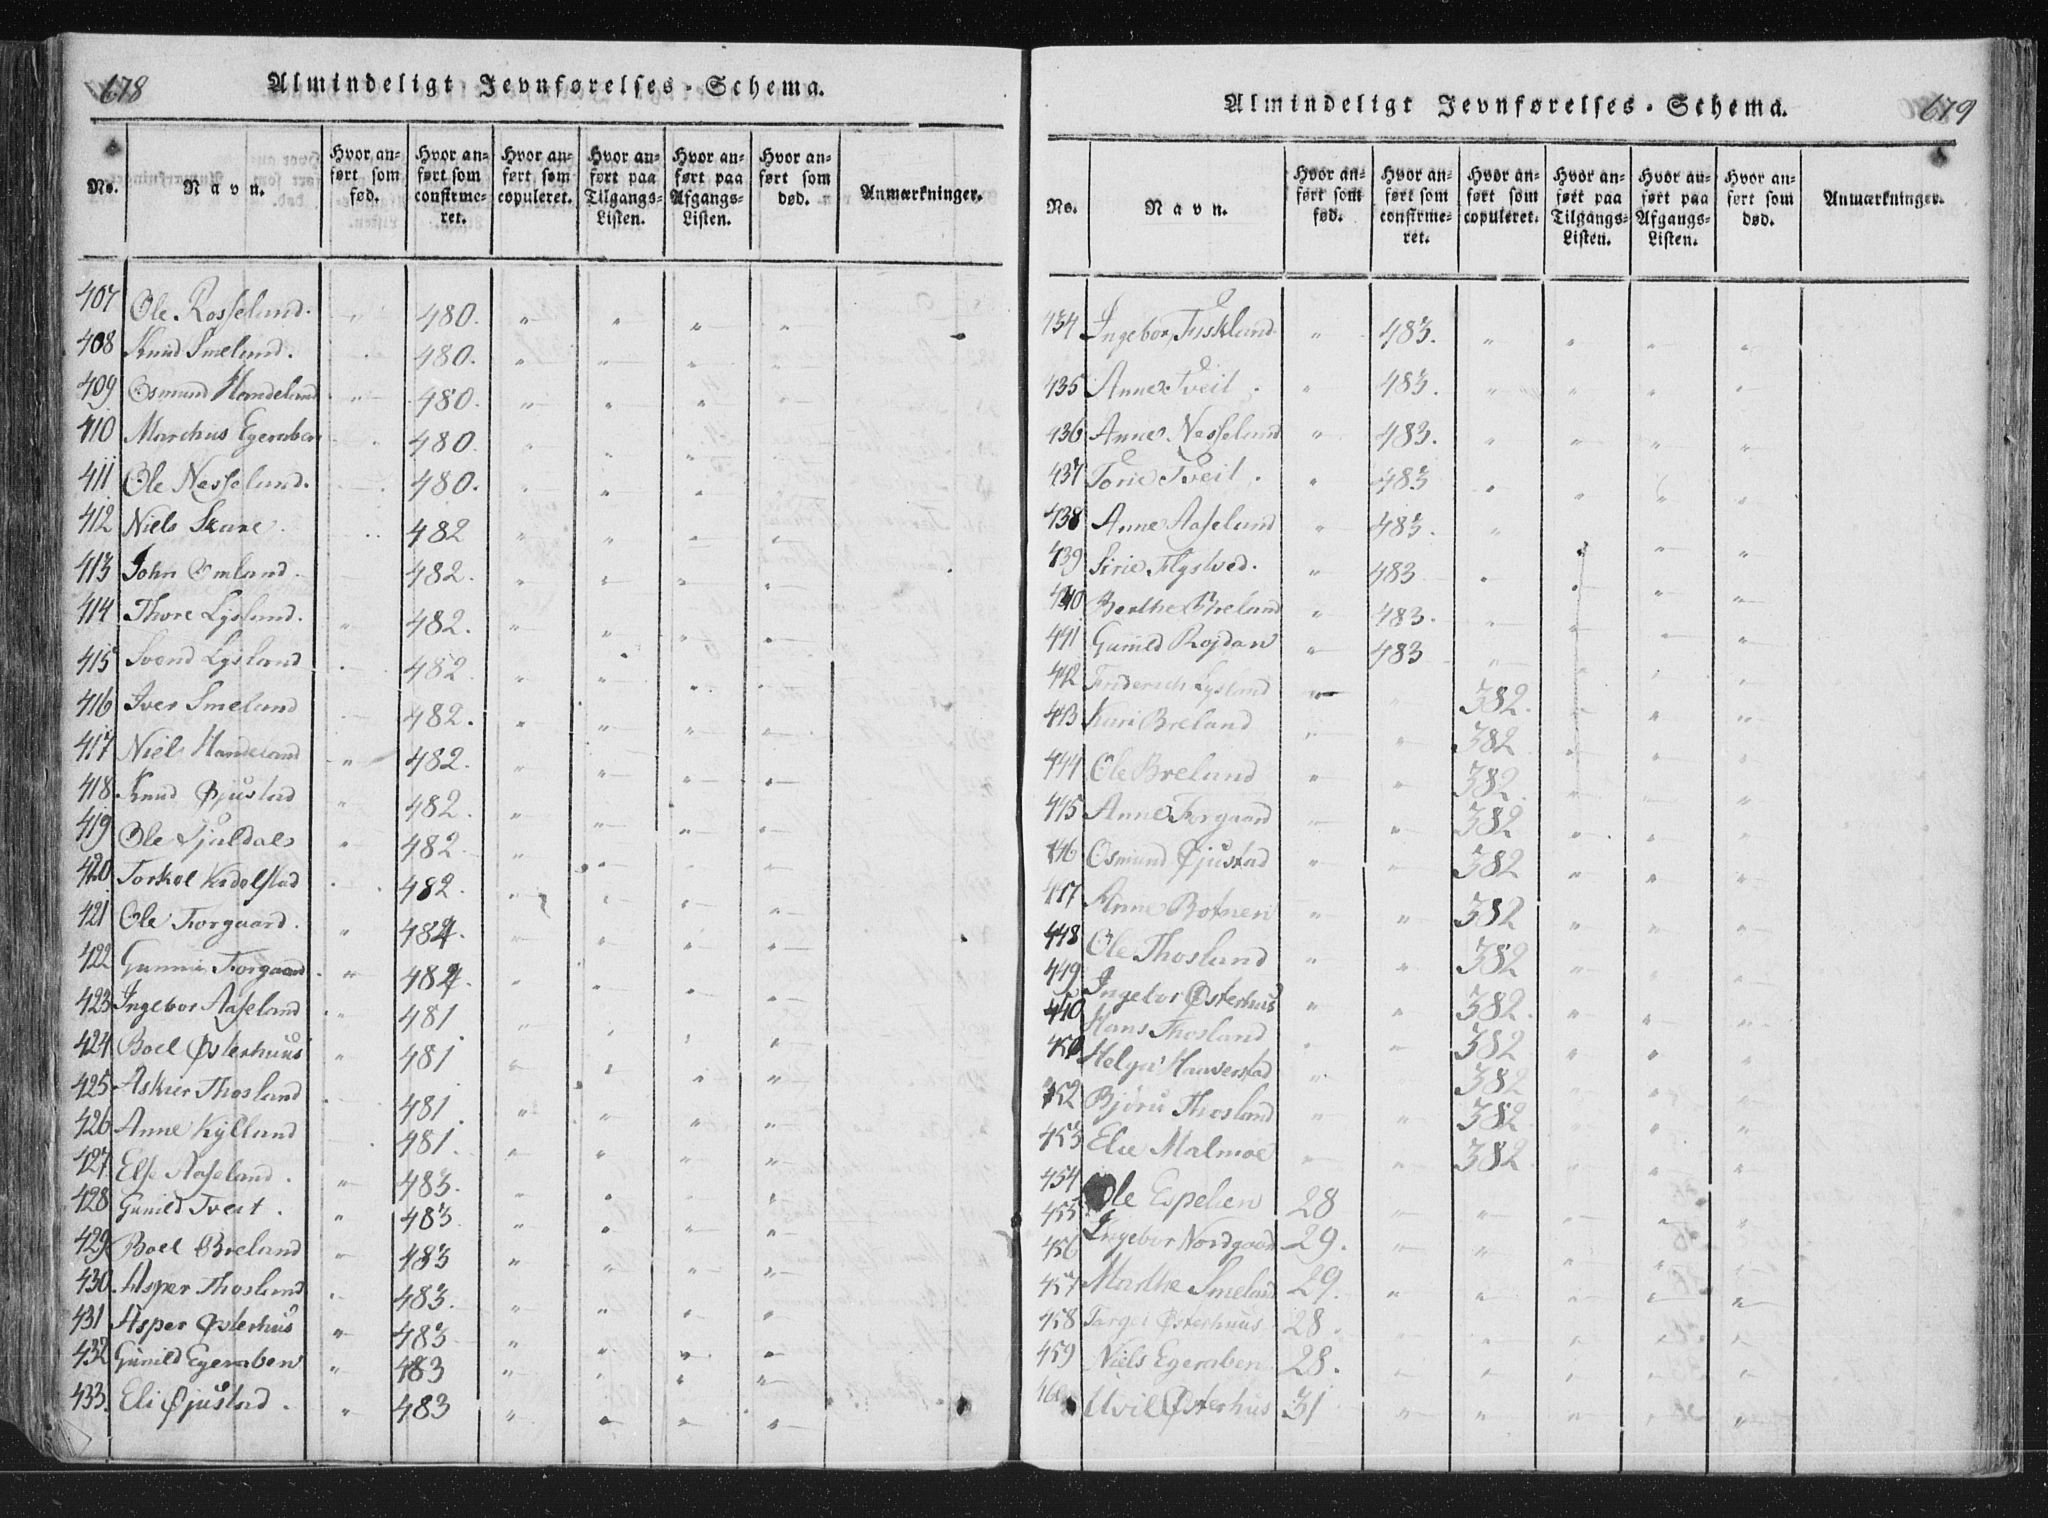 678
Almindeligt Jevnførelses-Schema.
No. | Navn. | Hvor anført som fød. | Hvor anført som confirmeret. | Hvor anført som copuleret. | Hvor anført paa Tilgangs-Listen. | Hvor anført paa Afgangs-Listen. | Hvor anført som død. | Anmærkninger.
407 Ole Rosseland. 480.
408 Knud Smeland. 480.
409 Osmund Handeland 480.
410 Marchus Egeraben 480
411 Ole Nesseland. 480.
412 Niels Skare. 482
413 John Omland. 482.
414 Thore Lysland. 482.
415 Svend Lysland 482.
416 Iver Smeland 482.
417 Niels Handeland 482.
418 Knud Øjustad 482.
419 Ole Qjuldals 482
420 Torkel Kidelstad 482.
421 Ole Forgaard. 482.
422 Gunni Forgaard. 482.
423 Ingebor Aaseland 481
424 Boel Østerhuus 481
425 Askier Thosland 481
426 Anne Kylland 481.
427 Else Aaseland. 483.
428 Gunild Tveit. 483
429 Boel Breland 483
430 Asper Thosland 483.
431 Asper Østerhus 483
432 Gunild Egeraben 483
433. Eli Øjustad. 483
679
Almindeligt Jevnførelses-Schema.
No. | Navn. | Hvor anført som fød. | Hvor anført som confirmeret. | Hvor anført som copuleret. | Hvor anført paa Tilgangs-Listen. | Hvor anført paa Afgangs-Listen. | Hvor anført som død. | Anmærkninger.
434 Ingebor Fuskland 483.
435 Anne Tveit. 483.
436 Anne Nesseland 483.
437 Torie Tveit. 483
438 Anne Aaseland 483.
439 Sirie Flystved. 483
440 Berthe Breland 483.
441 Gunild Rojdan 483
442 Friderich Lysland 382.
443 Kari Breland 382
444 Ole Breland 382.
445 Anne Forgaard 382
446 Osmund Øjustad 382
447 Anne Botnen 382
448 Ole Thosland 382
449 Ingebor Østerhus 382.
440 Hans Thosland 382
450 Helge Haaverstad 382
452 Bjøru Thosland 382
453 Elie Malmoe 382
454 Ole Espelien 28
455 Ingebor Nordgaard 29.
456
457 Marthe Smeland 29.
458 Targei Østerhuus 28.
459 Niels Egeraben 28.
460 Østerhus 31